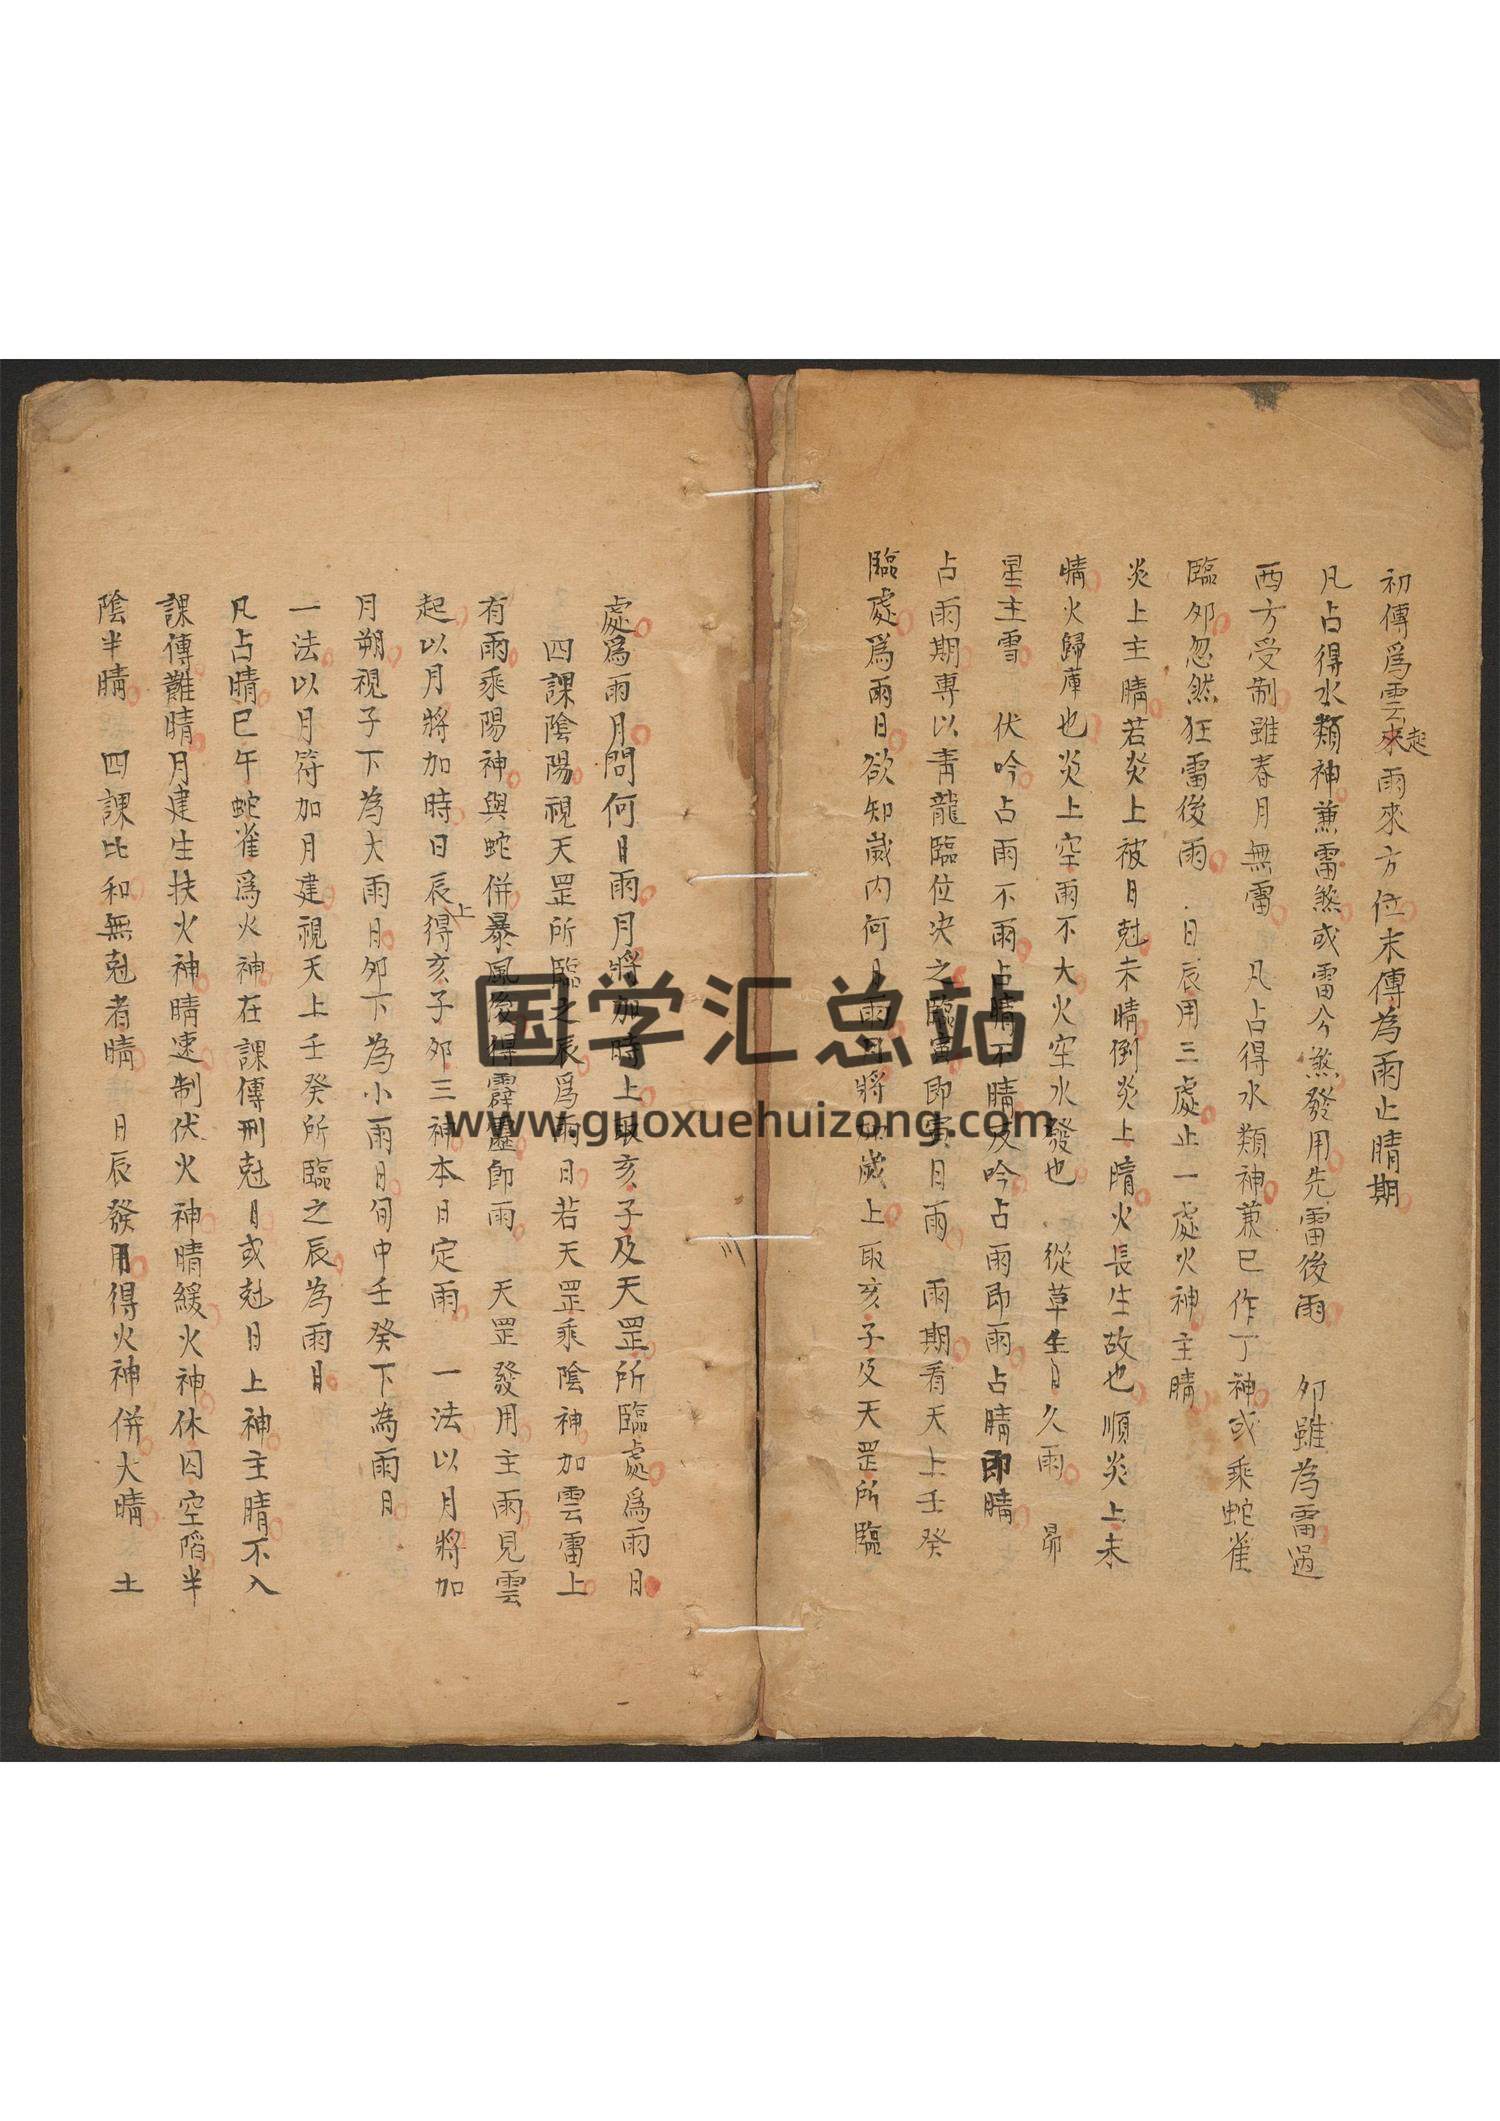 初傳為雲來起雨來方位末傳為雨止晴期
凡占得水類神兼雷煞或雷公煞發用先雷後雨 夘雖為雷遇
西方受制雖春月無雷 凡占得水類神兼巳作丁神或乘蛇雀
臨夘忽然狂雷後雨 日辰用三處止一處火神主晴
炎上主晴若炎上被日尅未晴倒炎上晴火長生故也順炎上未
晴火歸庫也炎上空雨不大火空水發也 從草生月久雨 昴
星主雪 伏吟占雨不雨占晴不晴反吟占雨即雨占晴即晴
占雨期專以青龍臨位决之臨寅即寅日雨 雨期看天上壬癸
臨處為雨日欲知歲内何月雨月將加歲上取亥子及天罡所臨
處為雨月問何日雨月將加時上取亥子及天罡所臨處為雨日
四課陰陽視天罡所臨之辰為雨日若天罡乘陰神加雲雷上
有雨乘陽神與蛇併暴風後得霹靂即雨 天罡發用主雨見雲
起以月將加時日辰上得亥子夘三神本日定雨 一法以月將加
月朔視子下為大雨日夘下為小雨日旬中壬癸下為雨日
一法以月符加月建視天上壬癸所臨之辰為雨日
凡占晴巳午蛇雀為火神在課傳刑尅日或尅日上神主晴不入
課傳難晴月建生扶火神晴速制伏火神晴緩火神休囚空陷半
陰半晴 四課比和無尅者晴 日辰發用得火神併大晴 土
国学汇总站
www.guoxuehuizong.com